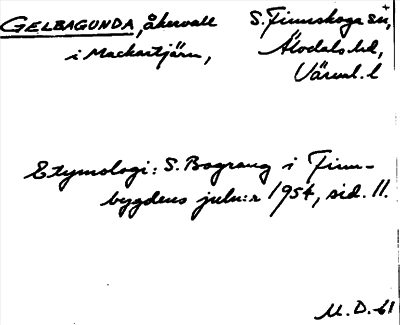 GELBAGUNDA, åkervall
i Mackartjärn,
S. Finnskoga sn,
Älvdals hd,
Värml. l
Etymologi: S. Bograng i Finn-
bygdens juln:r 1954, sid. 11.
M. D. -61